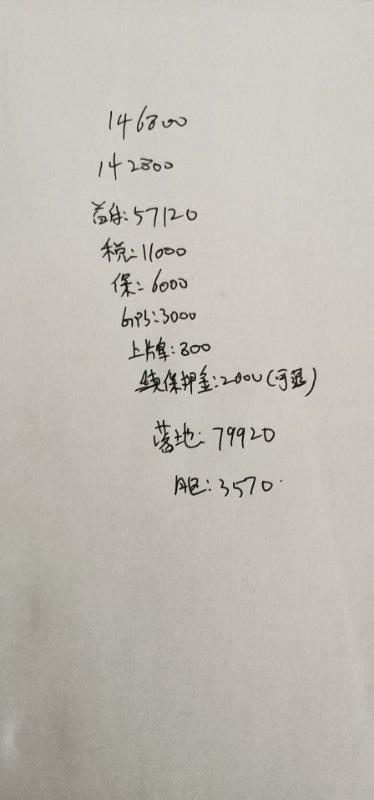 146800
142800
首付:57120
税:11000
保:6000
GPS:3000
上牌:800
续保押金:2000(可退)
落地:79920
月供:3570